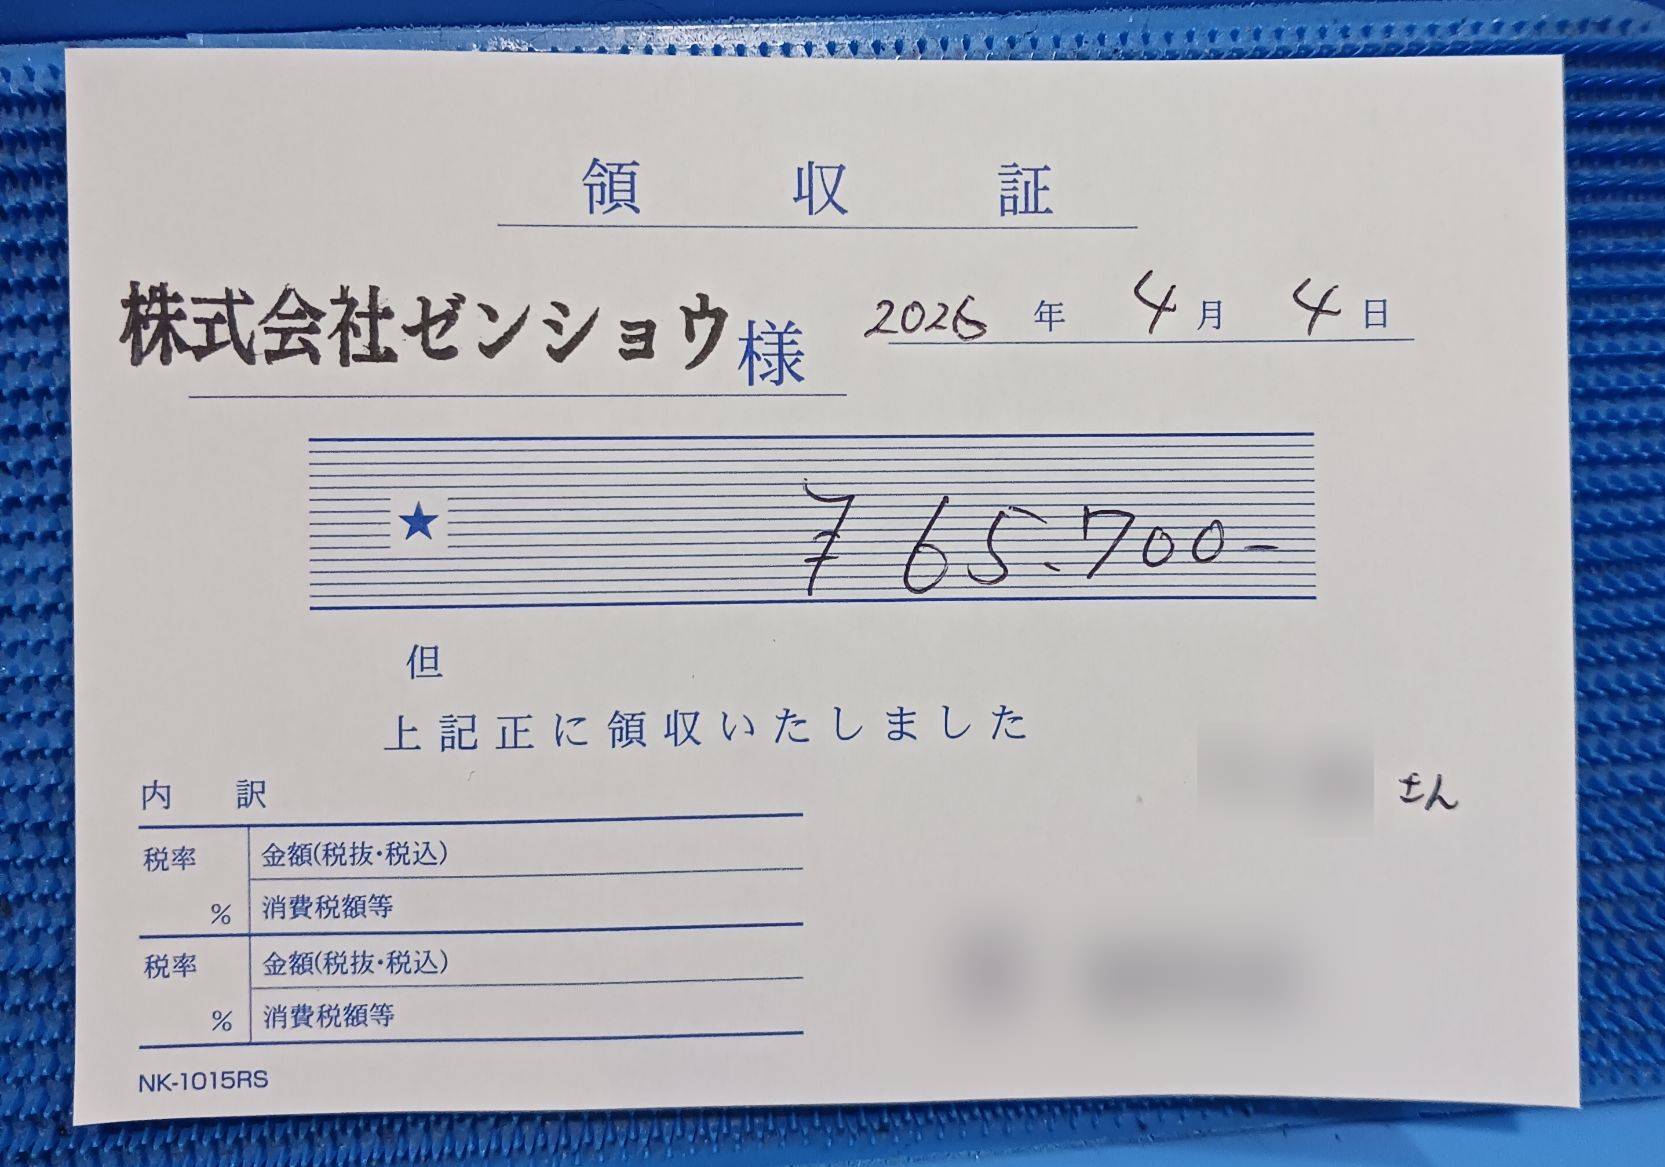 領収証
株式会社ゼンショウ様
2026年4月4日
★ ¥65.700-
但
上記正に領収いたしました
さん
内訳
税率 % 金額(税抜・税込)
消費税額等
税率 % 金額(税抜・税込)
消費税額等
NK-1015RS